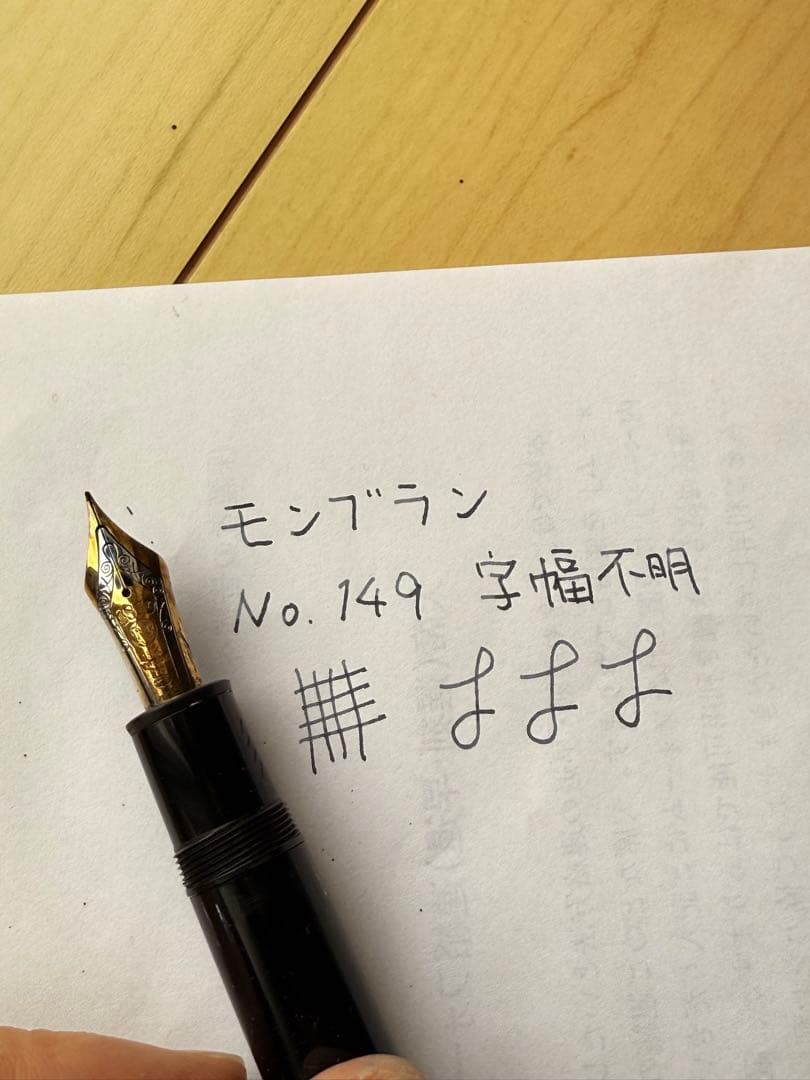 モンブラン
No. 149 字幅不明